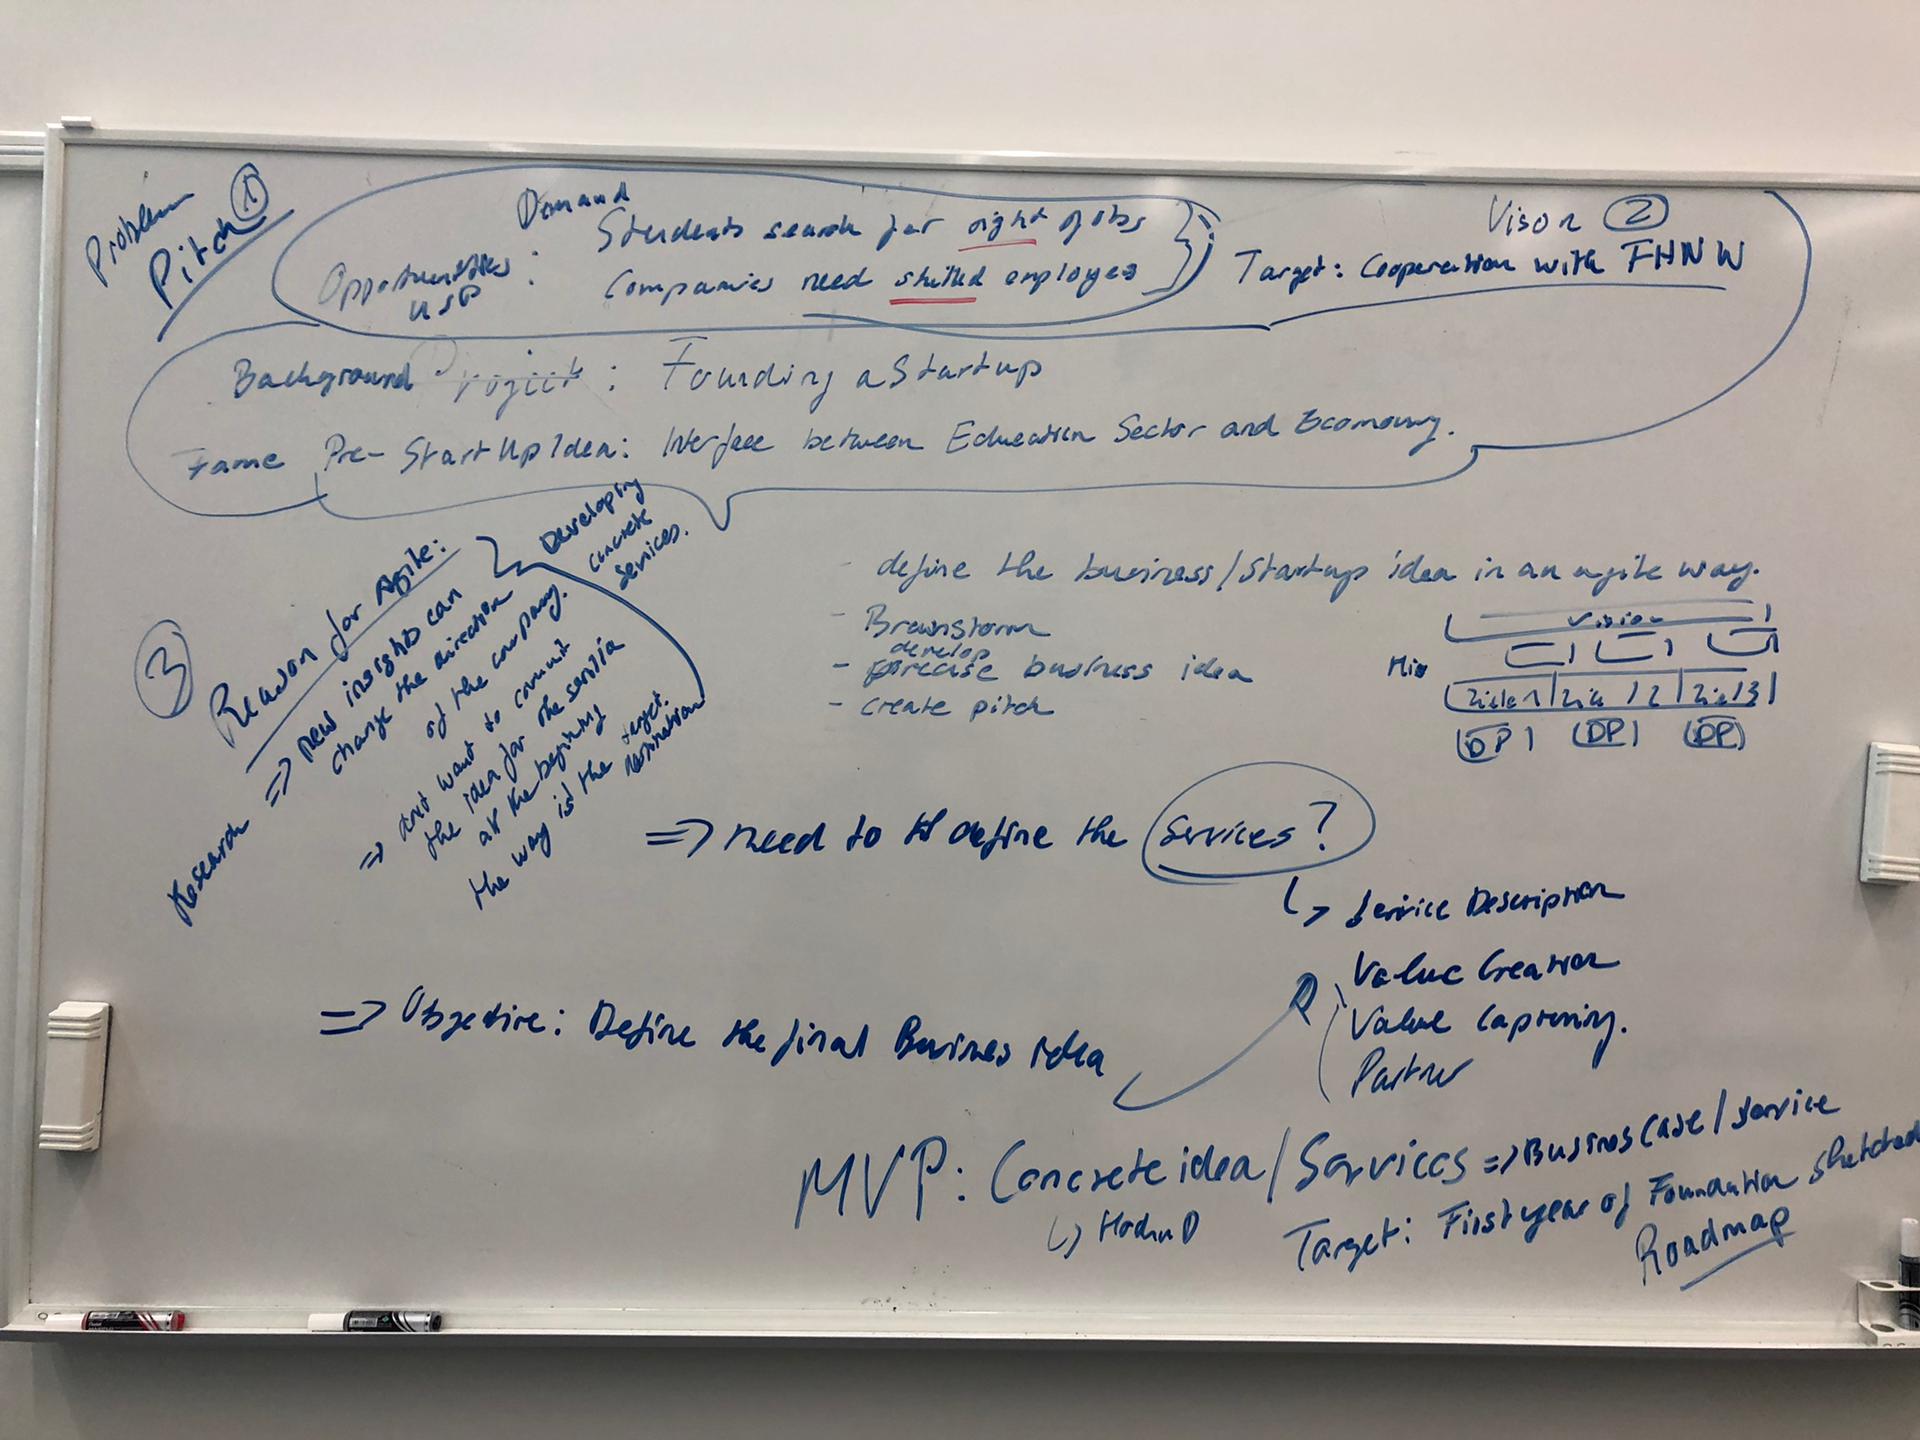 Problem
Pitch 1
Demand
Opportunities : Students search for right jobs
USP Companies need skilled employes
Vison 2
Target: Cooperation with FHNW
Background Project : Founding a Startup
Fame Pre-StartUp Idea: Interface between Education Sector and Economy.
3
Reason for Agile:
Research => new insights can
change the direction
of the company.
=> want to commit
the idea for the
at the beginning
the way is the target.
destination
Developing
concrete
services.
- define the business/startup idea in an agile way.
- Brainstorm
develop
- precise business idea
- create pitch
Vision
Ziele 1 Ziele 2 Ziel 3
DP DP DP
=> need to define the Services?
↳ Service Description
Value Creation
Value Capturing.
Partner
=> Objective: Define the final Busines idea
MVP: Concrete idea/Services => Busines Case/Service
Target: First year of Foundation sketched
Roadmap